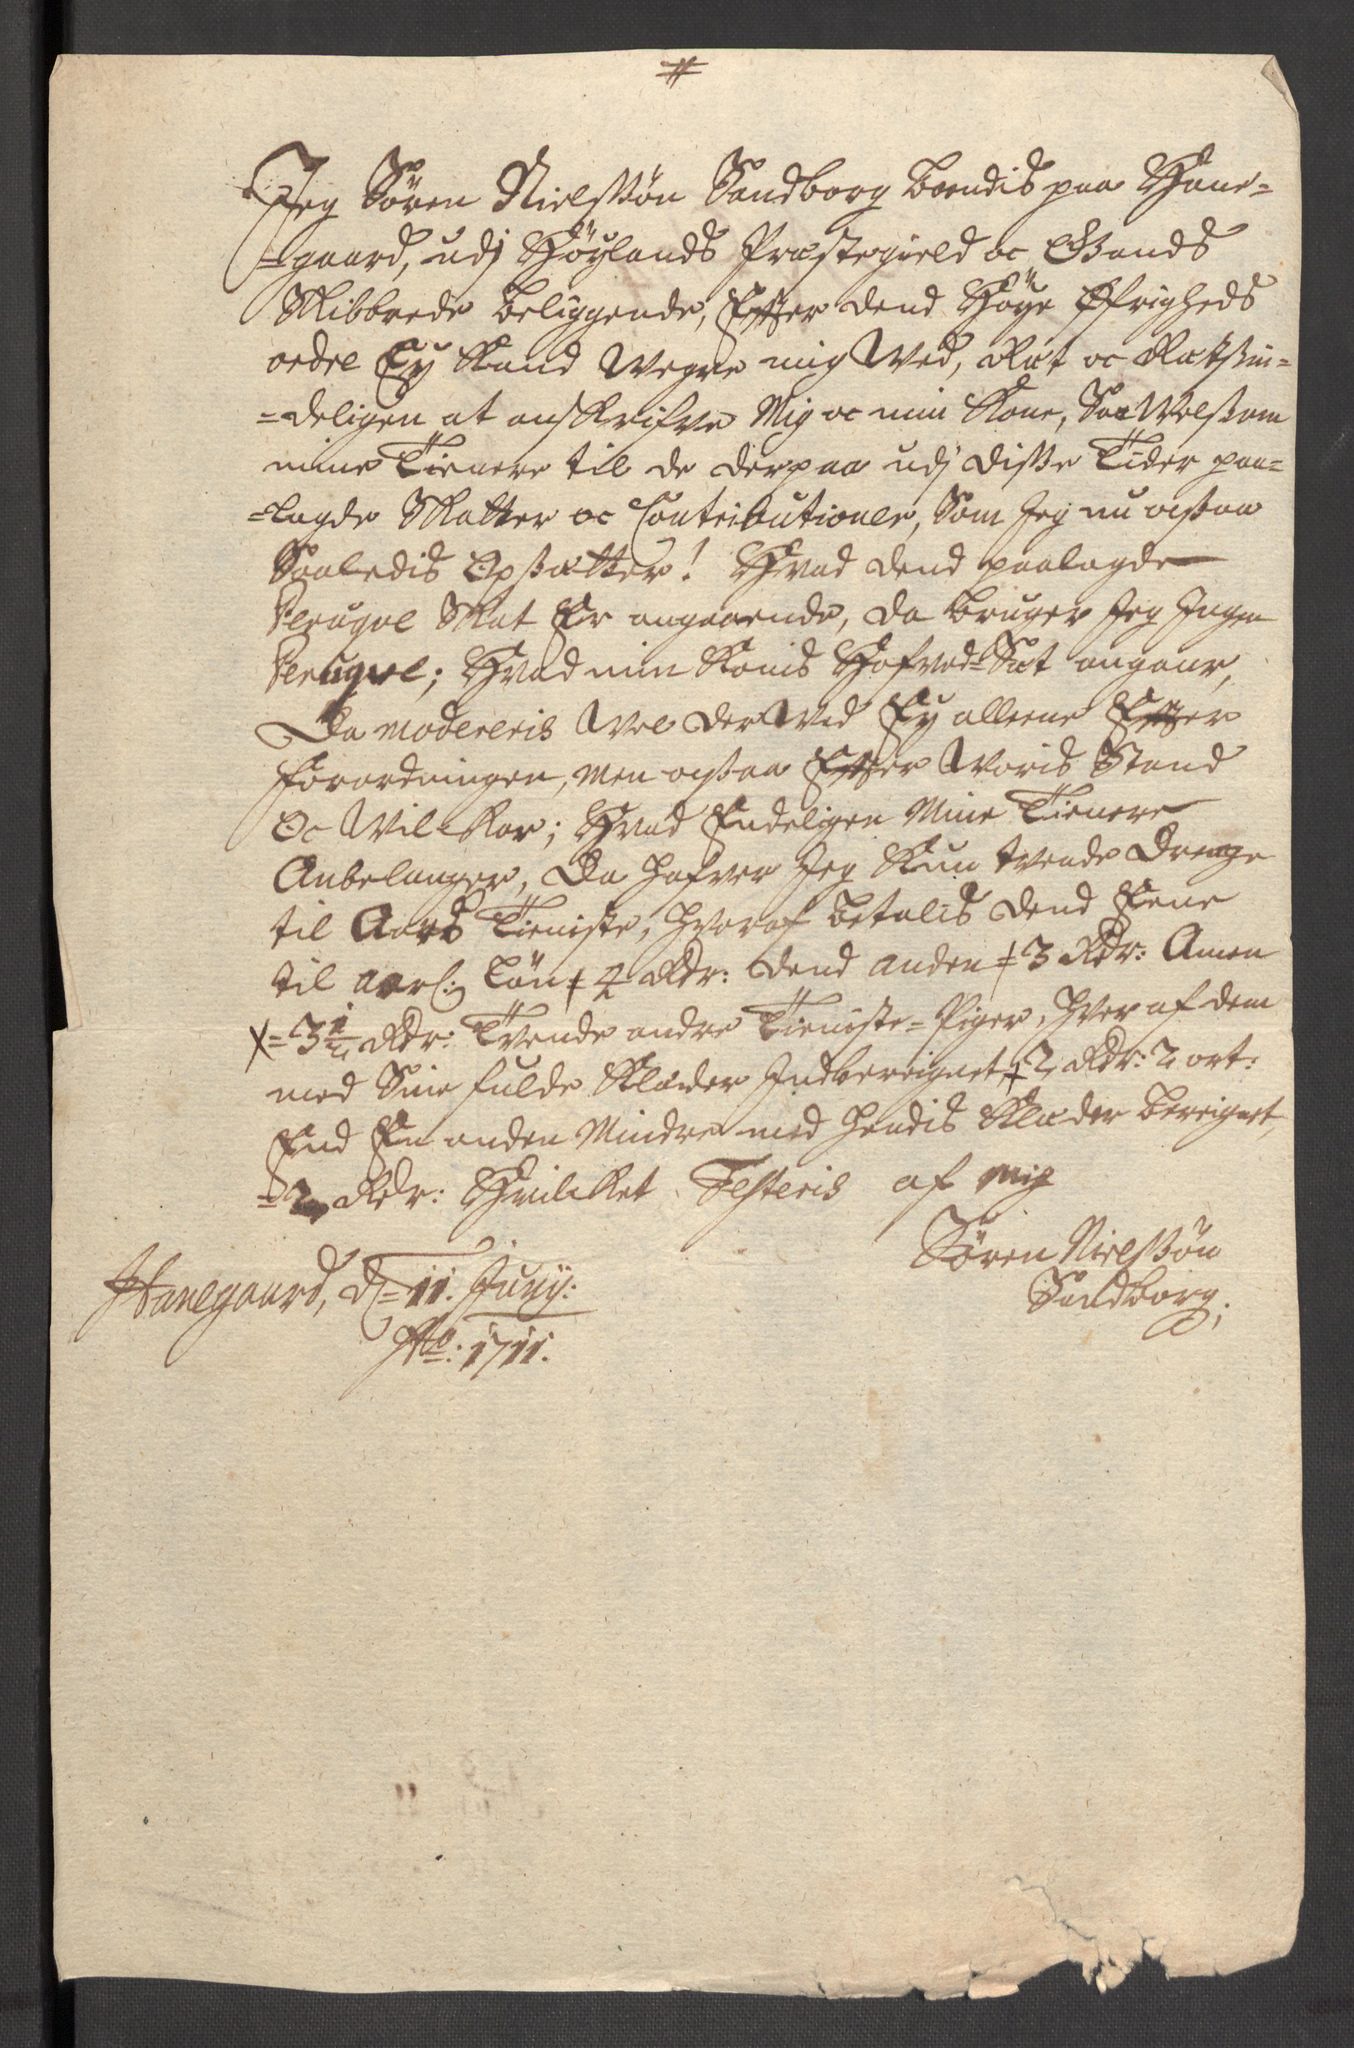 Jeg Sören Nielssön Sandborg boendis paa Hane-
=gaard, udj Höylands Præstegield oc Gands
Skibbrede beliggende, Effter dend Höye Øfrigheds
ordre Ey kand Wegre mig Wed, Ræt oc Rætsin-
=deligen at anskrifve Mig oc min Kone, Saa Velsom
mine Tienere til de derpaa udj disse Tider paa-
=lagde Skatter oc Contributioner, Som Jeg nu ocsaa
Saaledis Opsætter! Hvad dend paalagde
Peruqve Skat Er angaaende, da bruger Jeg Ingen
Peruqve; Hvad min Konis Hofved-Sæt angaar,
Da modereris Vel der Ved Ey alleene Effter
forordningen, men ocsaa Effter Woris Stand
Oc Vilckor; Hvad Endeligen Mine Tienere
Anbelanger, Da hafver Jeg Kun tvende Drenge
til Aars Tieniste, hvoraf betalis dend Eene
til aarl: Lön 4 Rdr: dend anden 3 Rdr: Amen
X= 3½ Rdr: Tvende andre Tieniste=Piger, hver af dem
med Sine fulde Klæder Indbereignet 2 Rdr: 2 ort:
End En anden Mindre med hendis Klæder bereignet,
=2 Rdr: Hvilcket Testeris af mig
Sören Nielssön
Sandborg;
Hanegaard, d= 11. Junij:
Ao: 1711.